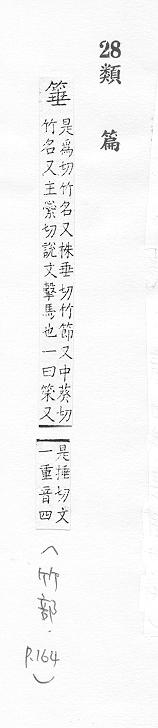 28 類篇
箠
是為切竹名又株垂切竹節又中葵切
竹名又主縈切說文擊馬也一曰策又
是捶切文
一重音四
(竹部. p.164)